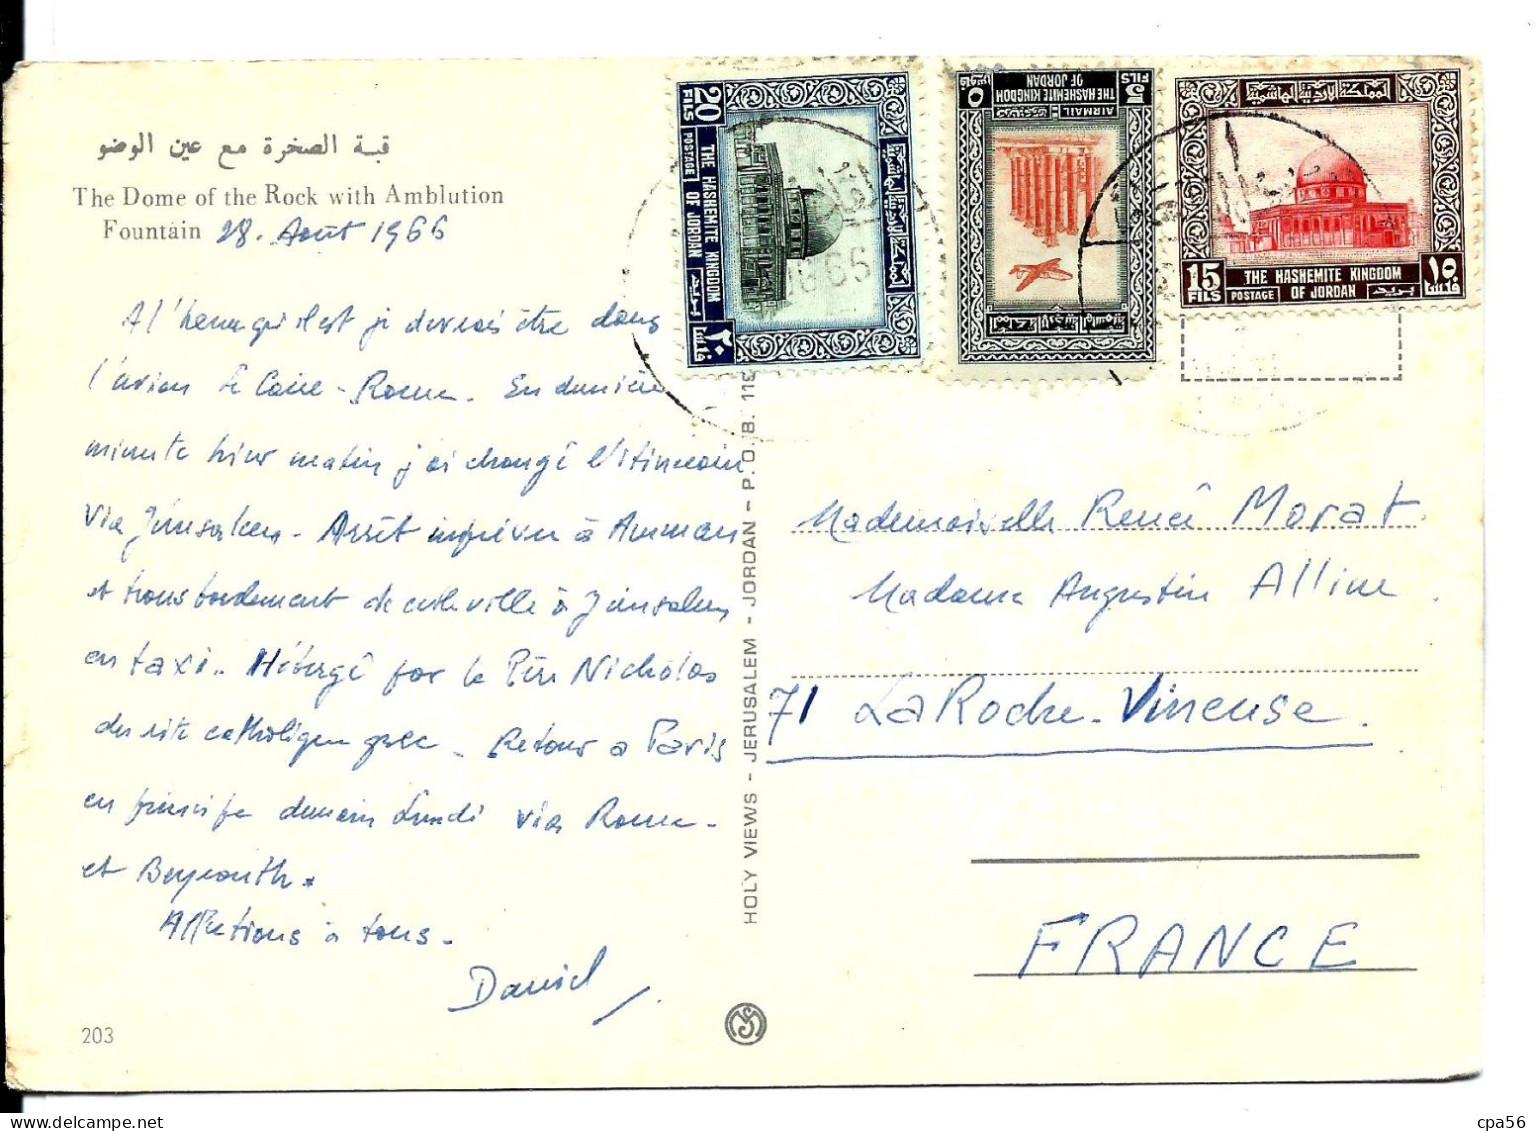 قبة الصخرة مع عين الوضو
The Dome of the Rock with Amblution
Fountain 28. Août 1966
A l'heure qu'il est je devrais être dans
l'avion Le Caire - Rome. En dernière
minute hier matin j'ai changé l'itinéraire
via Jérusalem. Arrêt imprévu à Amman
et transbordement de cette ville à Jérusalem
en taxi.. Hébergé par le Père Nicholas
du rite catholique grec - Retour à Paris
en principe demain Lundi via Rome -
et Beyrouth.
Affections à tous -
Daniel
203
HOLY VIEWS - JERUSALEM - JORDAN - P.O.B. 119
20
FILS
THE HASHEMITE KINGDOM
POSTAGE OF JORDAN
بريد
٢٠
فلس
المملكة الاردنية الهاشمية
THE HASHEMITE KINGDOM
OF JORDAN
5
FILS
٥
AIRMAIL
المملكة الاردنية الهاشمية
15
FILS
THE HASHEMITE KINGDOM
POSTAGE OF JORDAN
بريد
١٥
فلسا
Mademoiselle Renée Morat
Madame Augustin Alline.
71 La Roche-Vineuse.
FRANCE
cpa56